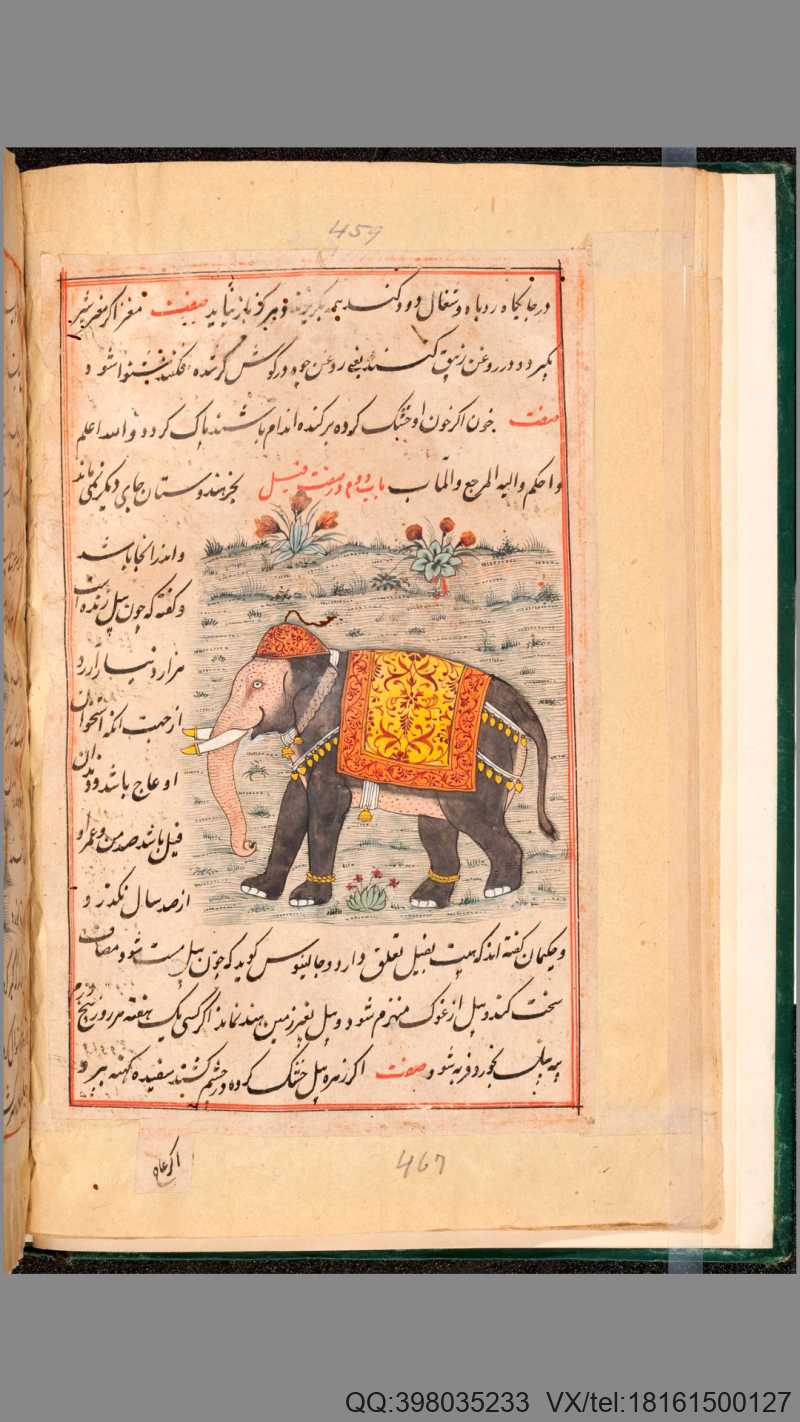 459
در جایگاه روباه و شغال دود کنند همه بگریزند و هرگز باز نیاید صفت مغز اگر مغز شیر
بگیرد و در روغن زنبق کنند یعنی روغن چو در گوش گر شده فکنند شنوا شود و
صفت خون اگر خون او خشک کرده بر کنده اندام باشند پاک گردد والله اعلم
و احکم والیه المرجع والمآب باب دوم در صفت فیل بجز هندوستان جای دیگر نمی ماند
و اندر انجا باشد
و گفته که چون پیل زنده است
هزار دینار ارزد
از جهت آنکه استخوان
او عاج باشد و دندان
فیل باشد صد من و عمر او
از صد سال نگذرد و
و حکیمان گفته اند که هیبت بفیل تعلق دارد و جالینوس گوید که چون پیل مست شود مصاف
سخت کند و پیل از غوک منهزم شود و پیل بغیر زمین هند نماند اگر کسی یک هفته هر روز پنج درم
پیه پیل بخورد فربه شود صفت اگر زهره پیل خشک کرده در چشم کشند سفیده کهنه ببرد
اگر عاج
467
QQ:398035233 VX/tel:18161500127